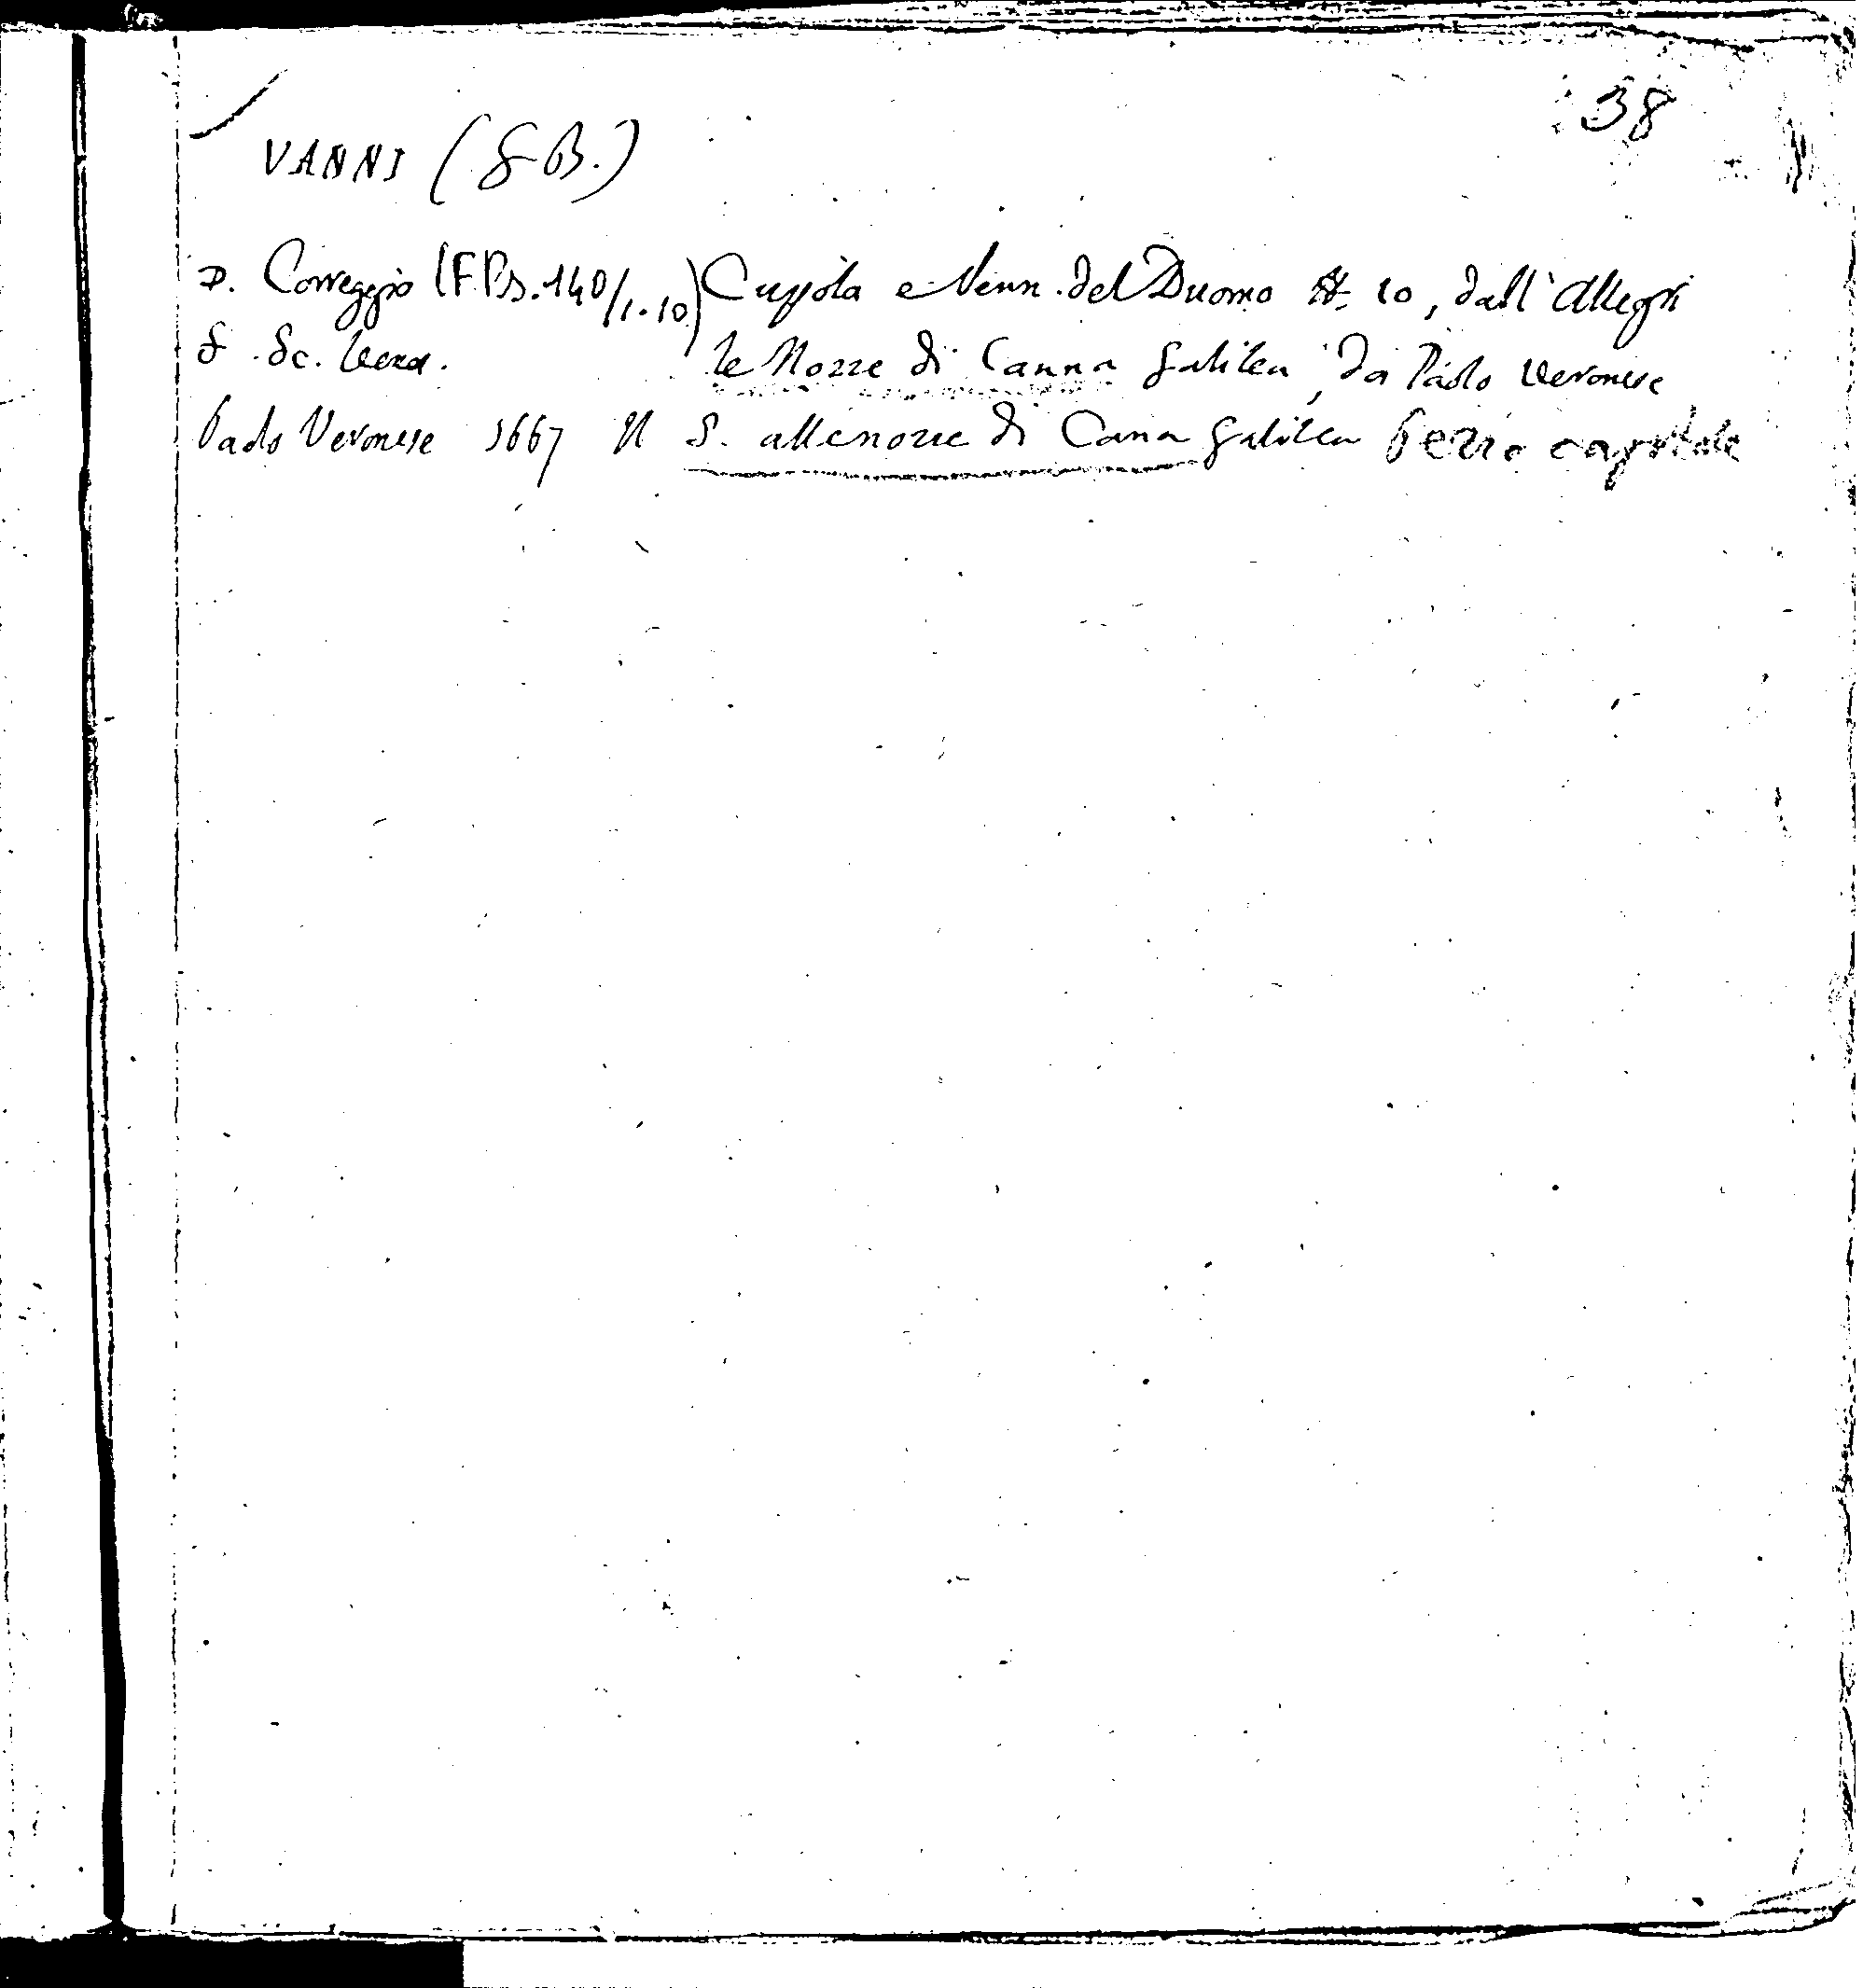 38
VANNI (G B.)
D. Correggio (F Bs. 140/1.10) Cuppola e Venn. del Duomo N. 10, dall'Allegri
G. Sc. Vene. le Nozze di Canna Galilea, da Paolo Veronese
Paolo Veronese 1667 N S. alle nozze di Cana Galilea Pezzo capitale